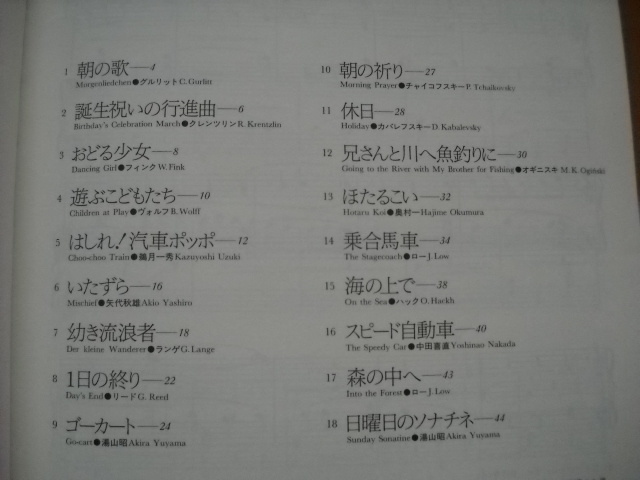 1 朝の歌—4
Morgenliedchen●グルリットC. Gurlitt
2 誕生祝いの行進曲—6
Birthday's Celebration March●クレンツリンR. Krentzlin
3 おどる少女—8
Dancing Girl●フィンクW. Fink
4 遊ぶこどもたち—10
Children at Play●ヴォルフB. Wolff
5 はしれ!汽車ポッポ—12
Choo-choo Train●鵜月一秀Kazuyoshi Uzuki
6 いたずら—16
Mischief●矢代秋雄Akio Yashiro
7 幼き流浪者—18
Der kleine Wanderer●ランゲG. Lange
8 1日の終り—22
Day's End●リードG. Reed
9 ゴーカート—24
Go-cart●湯山昭Akira Yuyama
10 朝の祈り—27
Morning Prayer●チャイコフスキーP. Tchaikovsky
11 休日—28
Holiday●カバレフスキーD. Kabalevsky
12 兄さんと川へ魚釣りに—30
Going to the River with My Brother for Fishing●オギニスキ M. K. Ogiński
13 ほたるこい—32
Hotaru Koi●奥村一Hajime Okumura
14 乗合馬車—34
The Stagecoach●ローJ. Low
15 海の上で—38
On the Sea●ハックO. Hackh
16 スピード自動車—40
The Speedy Car●中田喜直Yoshinao Nakada
17 森の中へ—43
Into the Forest●ローJ. Low
18 日曜日のソナチネ—44
Sunday Sonatine●湯山昭Akira Yuyama